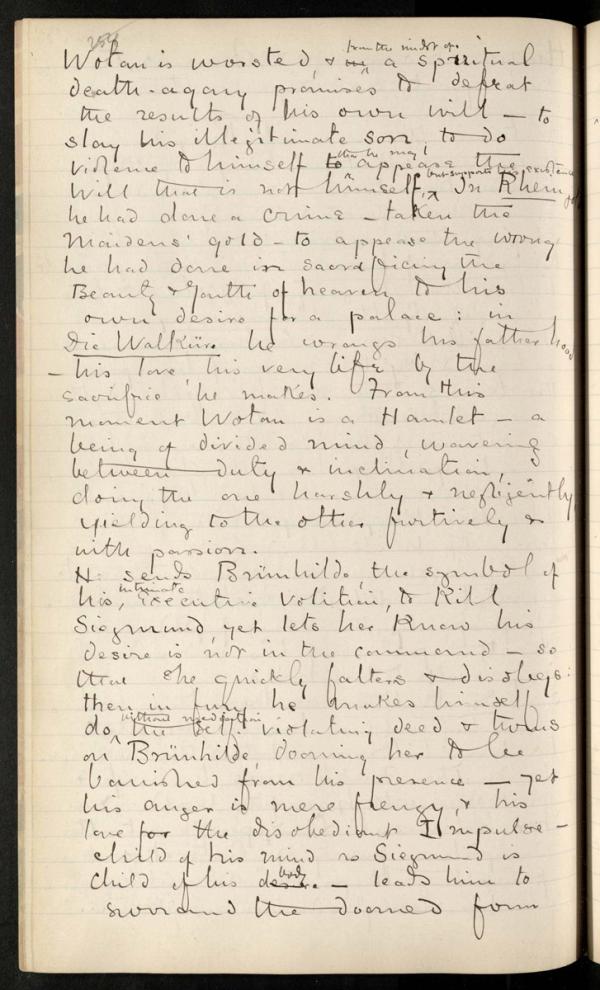 254
Wotan is worsted, & from the midst of a spiritual
death-agony promises to defeat
the results of his own will — to
slay his illegitimate son, to do
violence to himself that he may appease the
Will that is not himself, but supports his existence. In Rheingold
he had done a crime — taken the
Maidens' gold — to appease the wrong
he had done in sacrificing the
Beauty & Youth of heaven to his
own desire for a palace: in
Die Walküre he wrongs his fatherhood
— his love, his very life by the
sacrifice he makes. From this
moment Wotan is a Hamlet — a
being of divided mind, wavering
between duty & inclination,
doing the one harshly & negligently,
yielding to the other furtively &
with passion.
He sends Brünhilde, the symbol of
his, intimate executive volition, to kill
Siegmund, yet lets her know his
desire is not in the command — so
that she quickly falters & disobeys:
then in fury he makes himself
do, without the self-violating deed & turns
on Brünhilde, dooming her to be
banished from his presence — yet
his anger is mere frenzy, & his
love for the disobedient Impulse —
child of his mind as Siegmund is
child of his body — leads him to
surround the doomed form